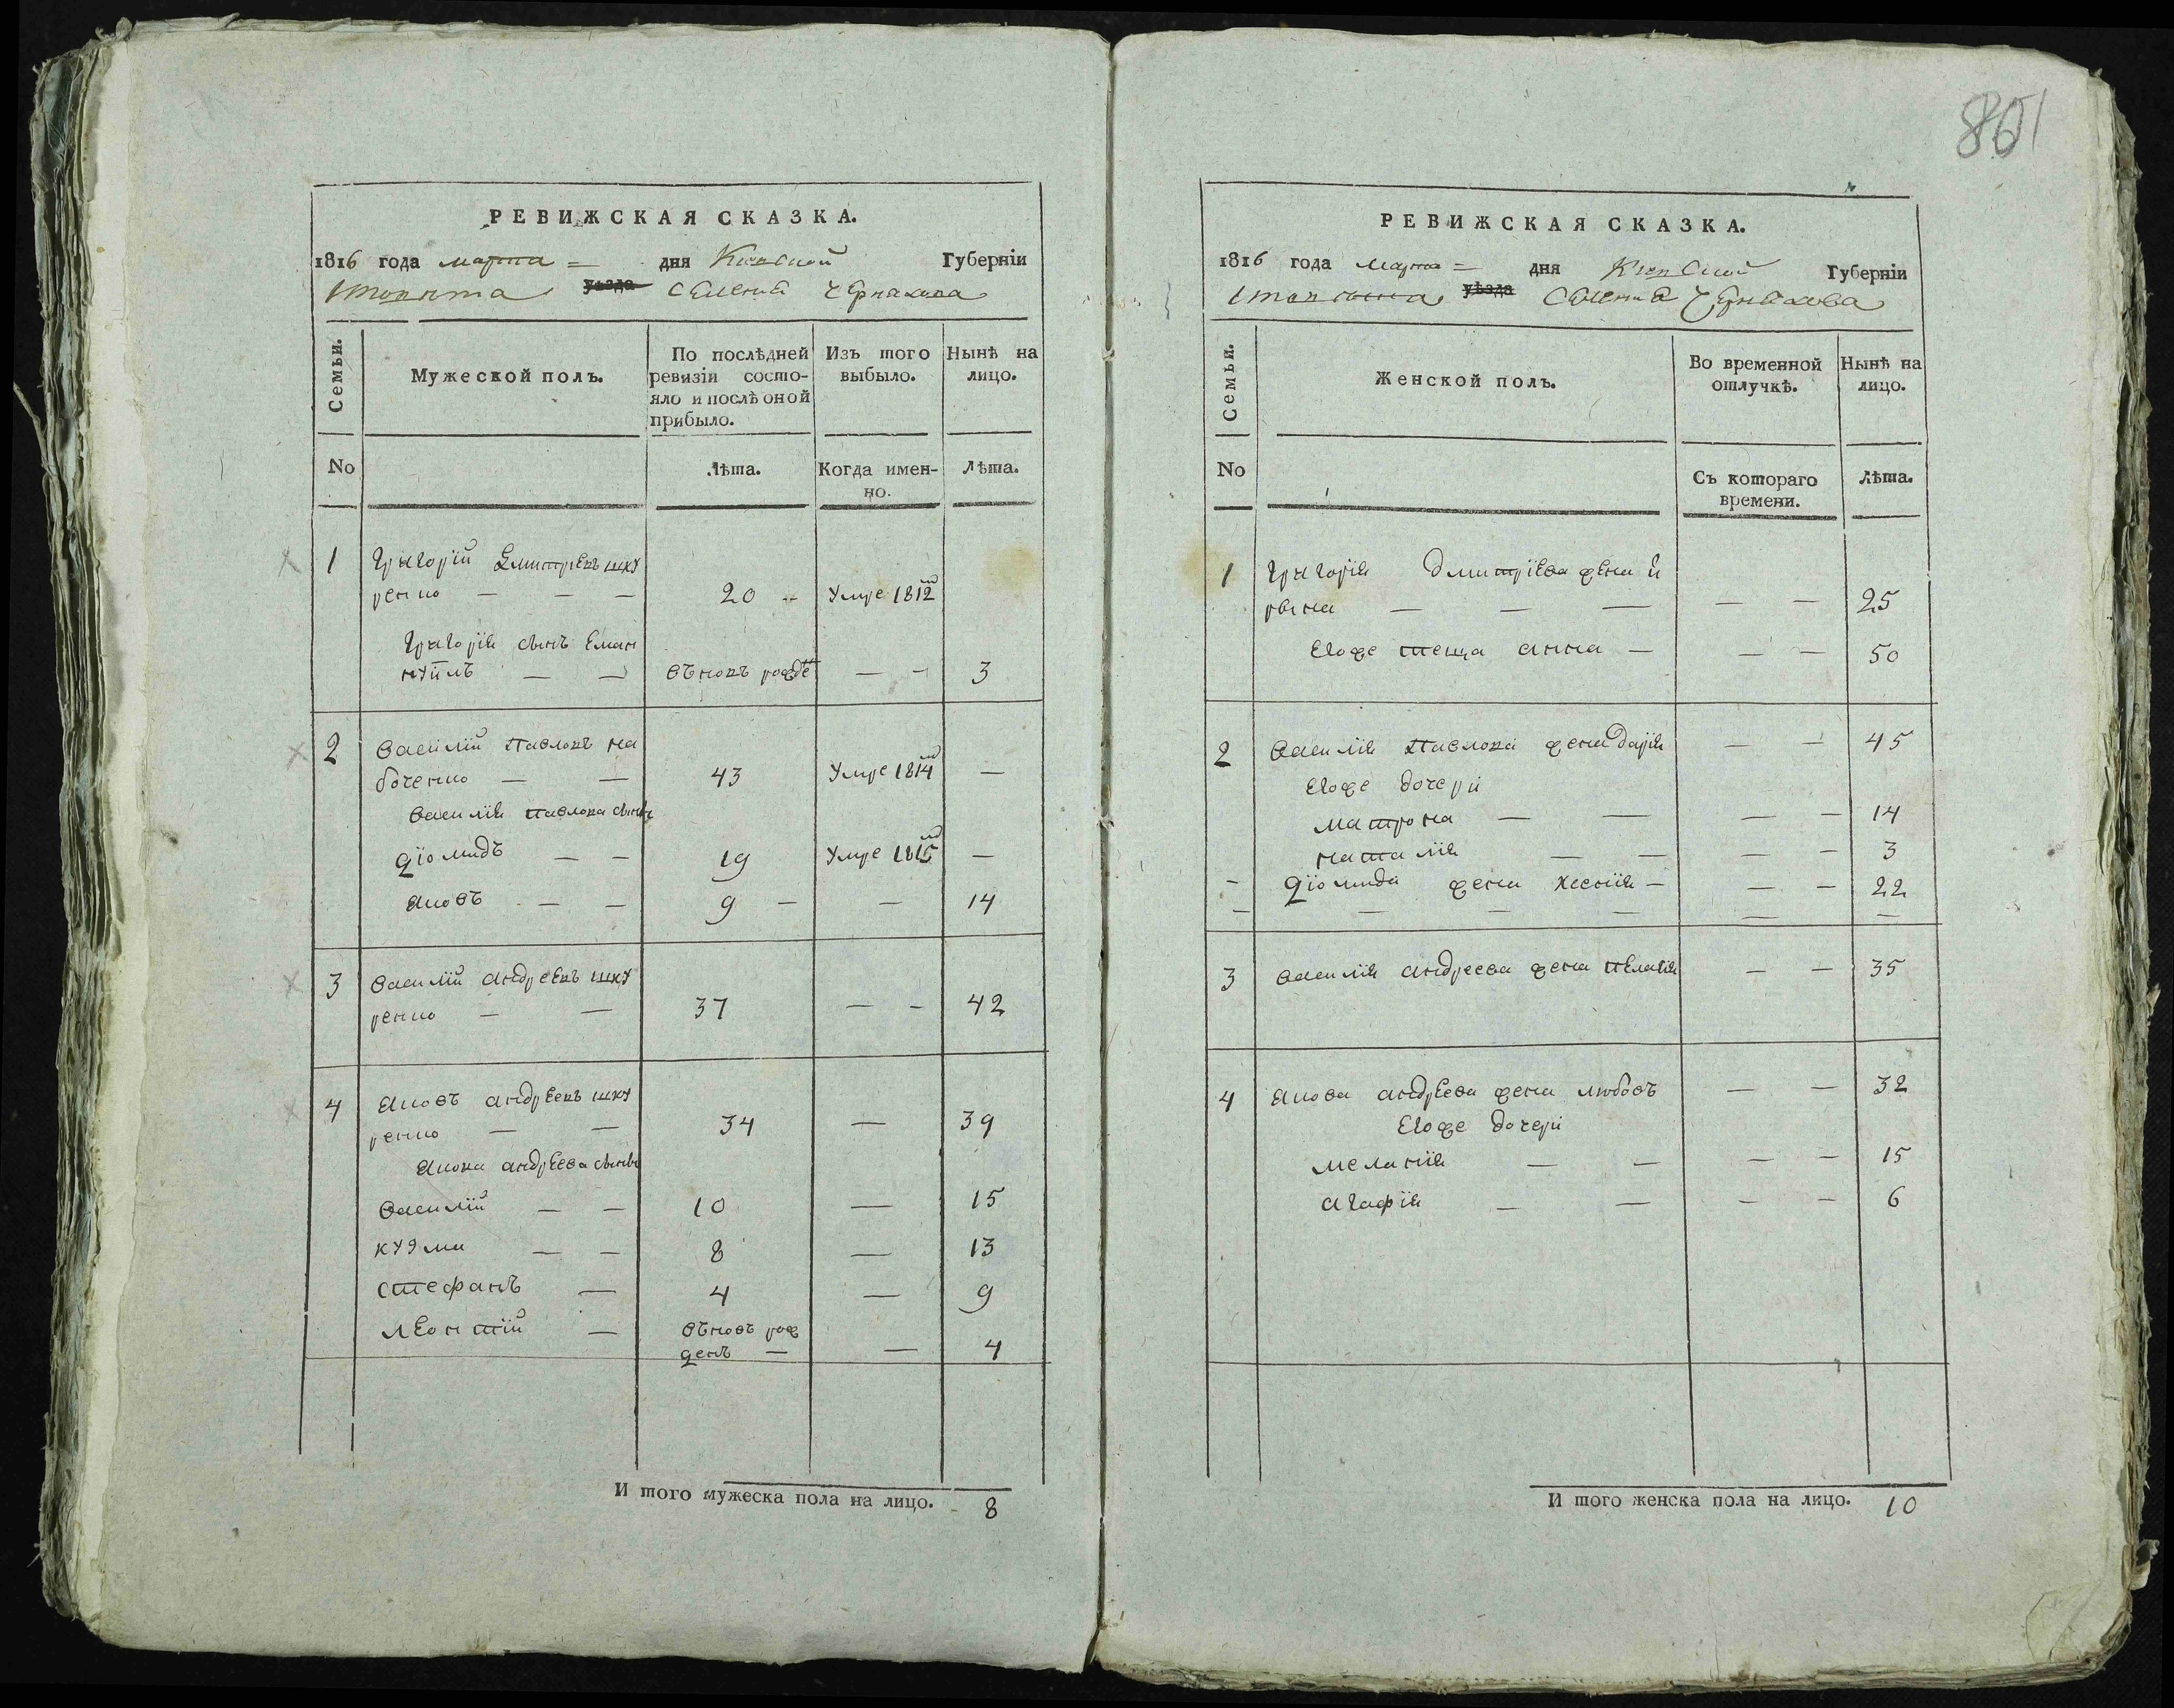 801
РЕВИЖСКАЯ СКАЗКА.
1816 года марта = дня Киевской Губерніи
уѣзда селенія Черняхова
Семьи.
Мужеской полъ.
По послѣдней ревизіи состо-
яло и послѣ оной
прибыло.
Изъ того
выбыло.
Нынѣ на
лицо.
No
Лѣта.
Когда имен-
но.
Лѣта.
1 Григорій Дмитріевъ шку
ренко — — — 20 — Умре 1812
Григорія сынъ Еман
нуилъ — — въновъ рожде — — 3
2 Василій Павловъ на
боченко — — 43 Умре 1814 —
Василія Павлова сынъ
Діомидъ — — 19 Умре 1815 —
Яковъ — — 9 — — 14
3 Василій Андреевъ шку
ренко — — 37 — — 42
4 Яковъ Андреевъ шку
ренко — — 34 — 39
Якова Андреева сынъ
Василій — — 10 — 15
Кузма — — 8 — 13
Стефанъ — 4 — 9
Леонтій — въновъ рож
денъ — — 4
И того мужеска пола на лицо. 8
РЕВИЖСКАЯ СКАЗКА.
1816 года марта = дня Киевской Губерніи
уѣзда селенія Черняхова
Семьи.
Женской полъ.
Во временной
отлучкѣ.
Нынѣ на
лицо.
No
Съ котораго
времени.
Лѣта.
1 Григорія Дмитріева жена И
рына — — — — — 25
Егоже теща Анна — — — 50
2 Василія Павлова жена Дарія — — 45
Егоже дочери
Матрона — — — — 14
Наталія — — — — 3
— Діомида жена Ксенія — — — 22
— — — — — —
3 Василія Андреева жена Пелагія — — 35
4 Якова Андреева жена Любовъ — — 32
Егоже дочери
Меланія — — — — 15
Агафія — — — — 6
И того женска пола на лицо. 10